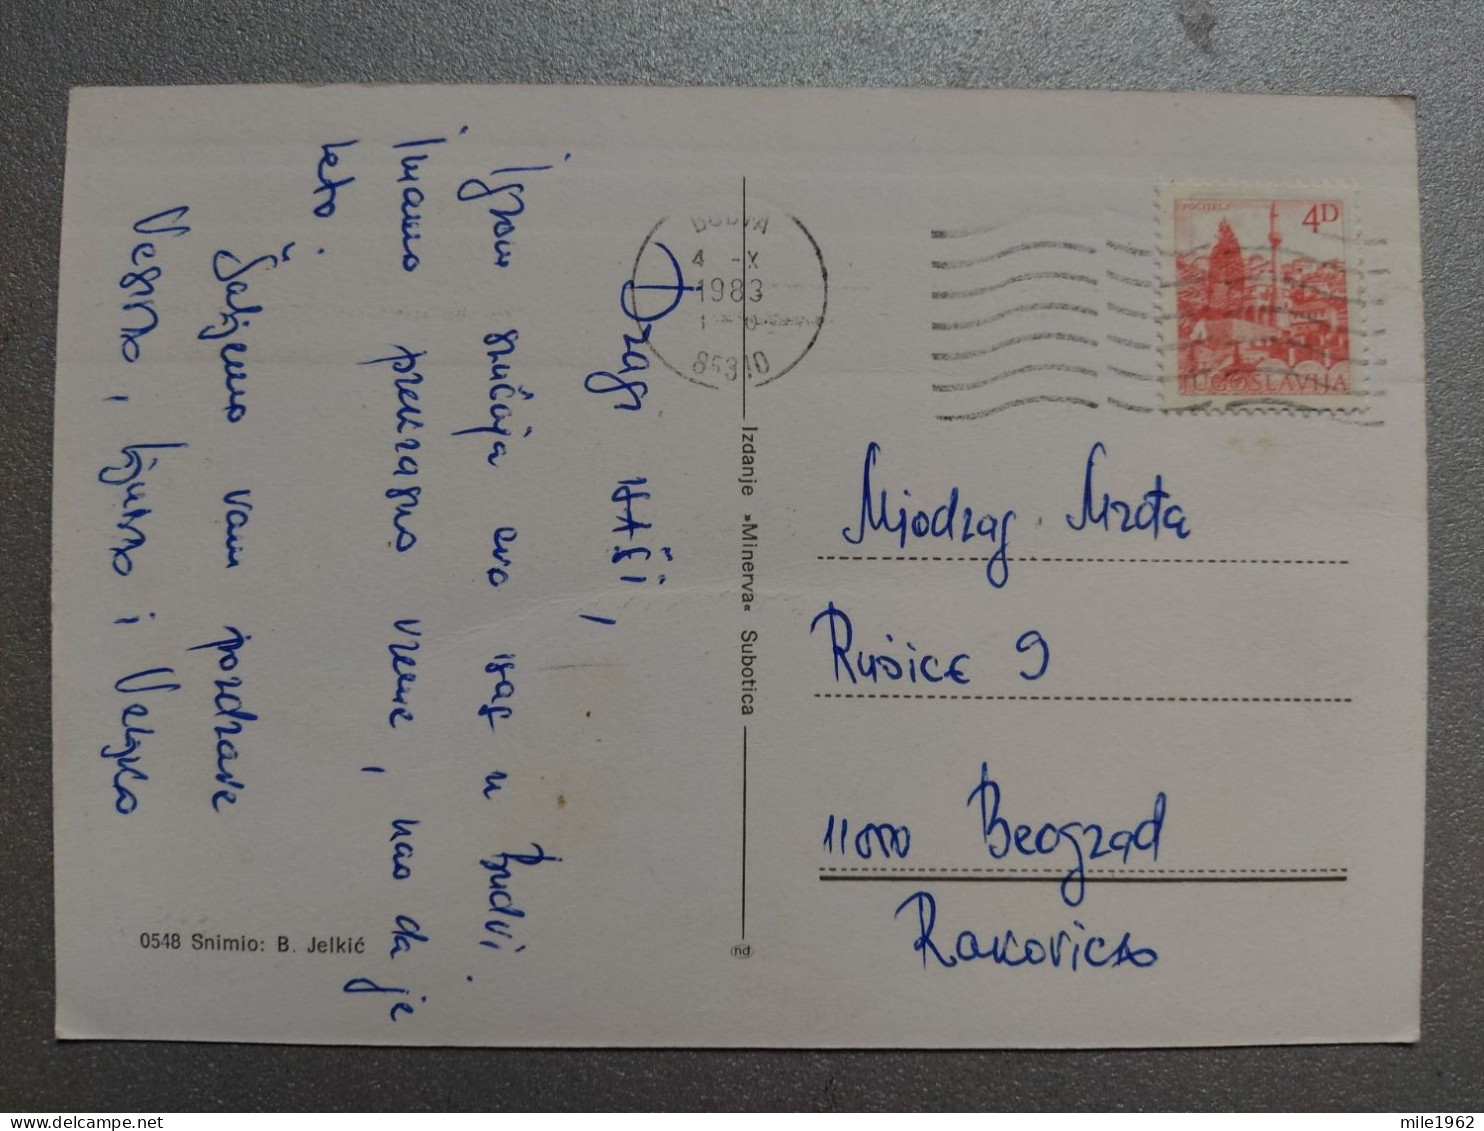 Dragi naši,
Igrom slučaja evo nas u Budvi.
Imamo prekrasno vreme, kao da je
leto.
Šaljemo vam pozdrave
Vesna, Ljuba i Veljko
0548 Snimio: B. Jelkić
Izdanje »Minerva« Subotica
nd
BUDVA
4 -X
1983
85310
POČITELJ
4D
JUGOSLAVIJA
Miodrag Mrđa
Rušice 9
11000 Beograd
Rakovica
mile1962